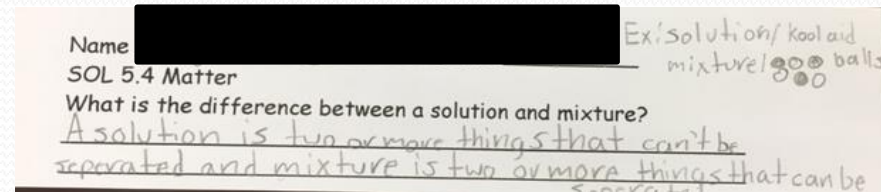 Name
Ex: solution/kool aid
mixture/ balls
SOL 5.4 Matter
What is the difference between a solution and mixture?
A solution is two or more things that can't be
seperated and mixture is two or more things that can be